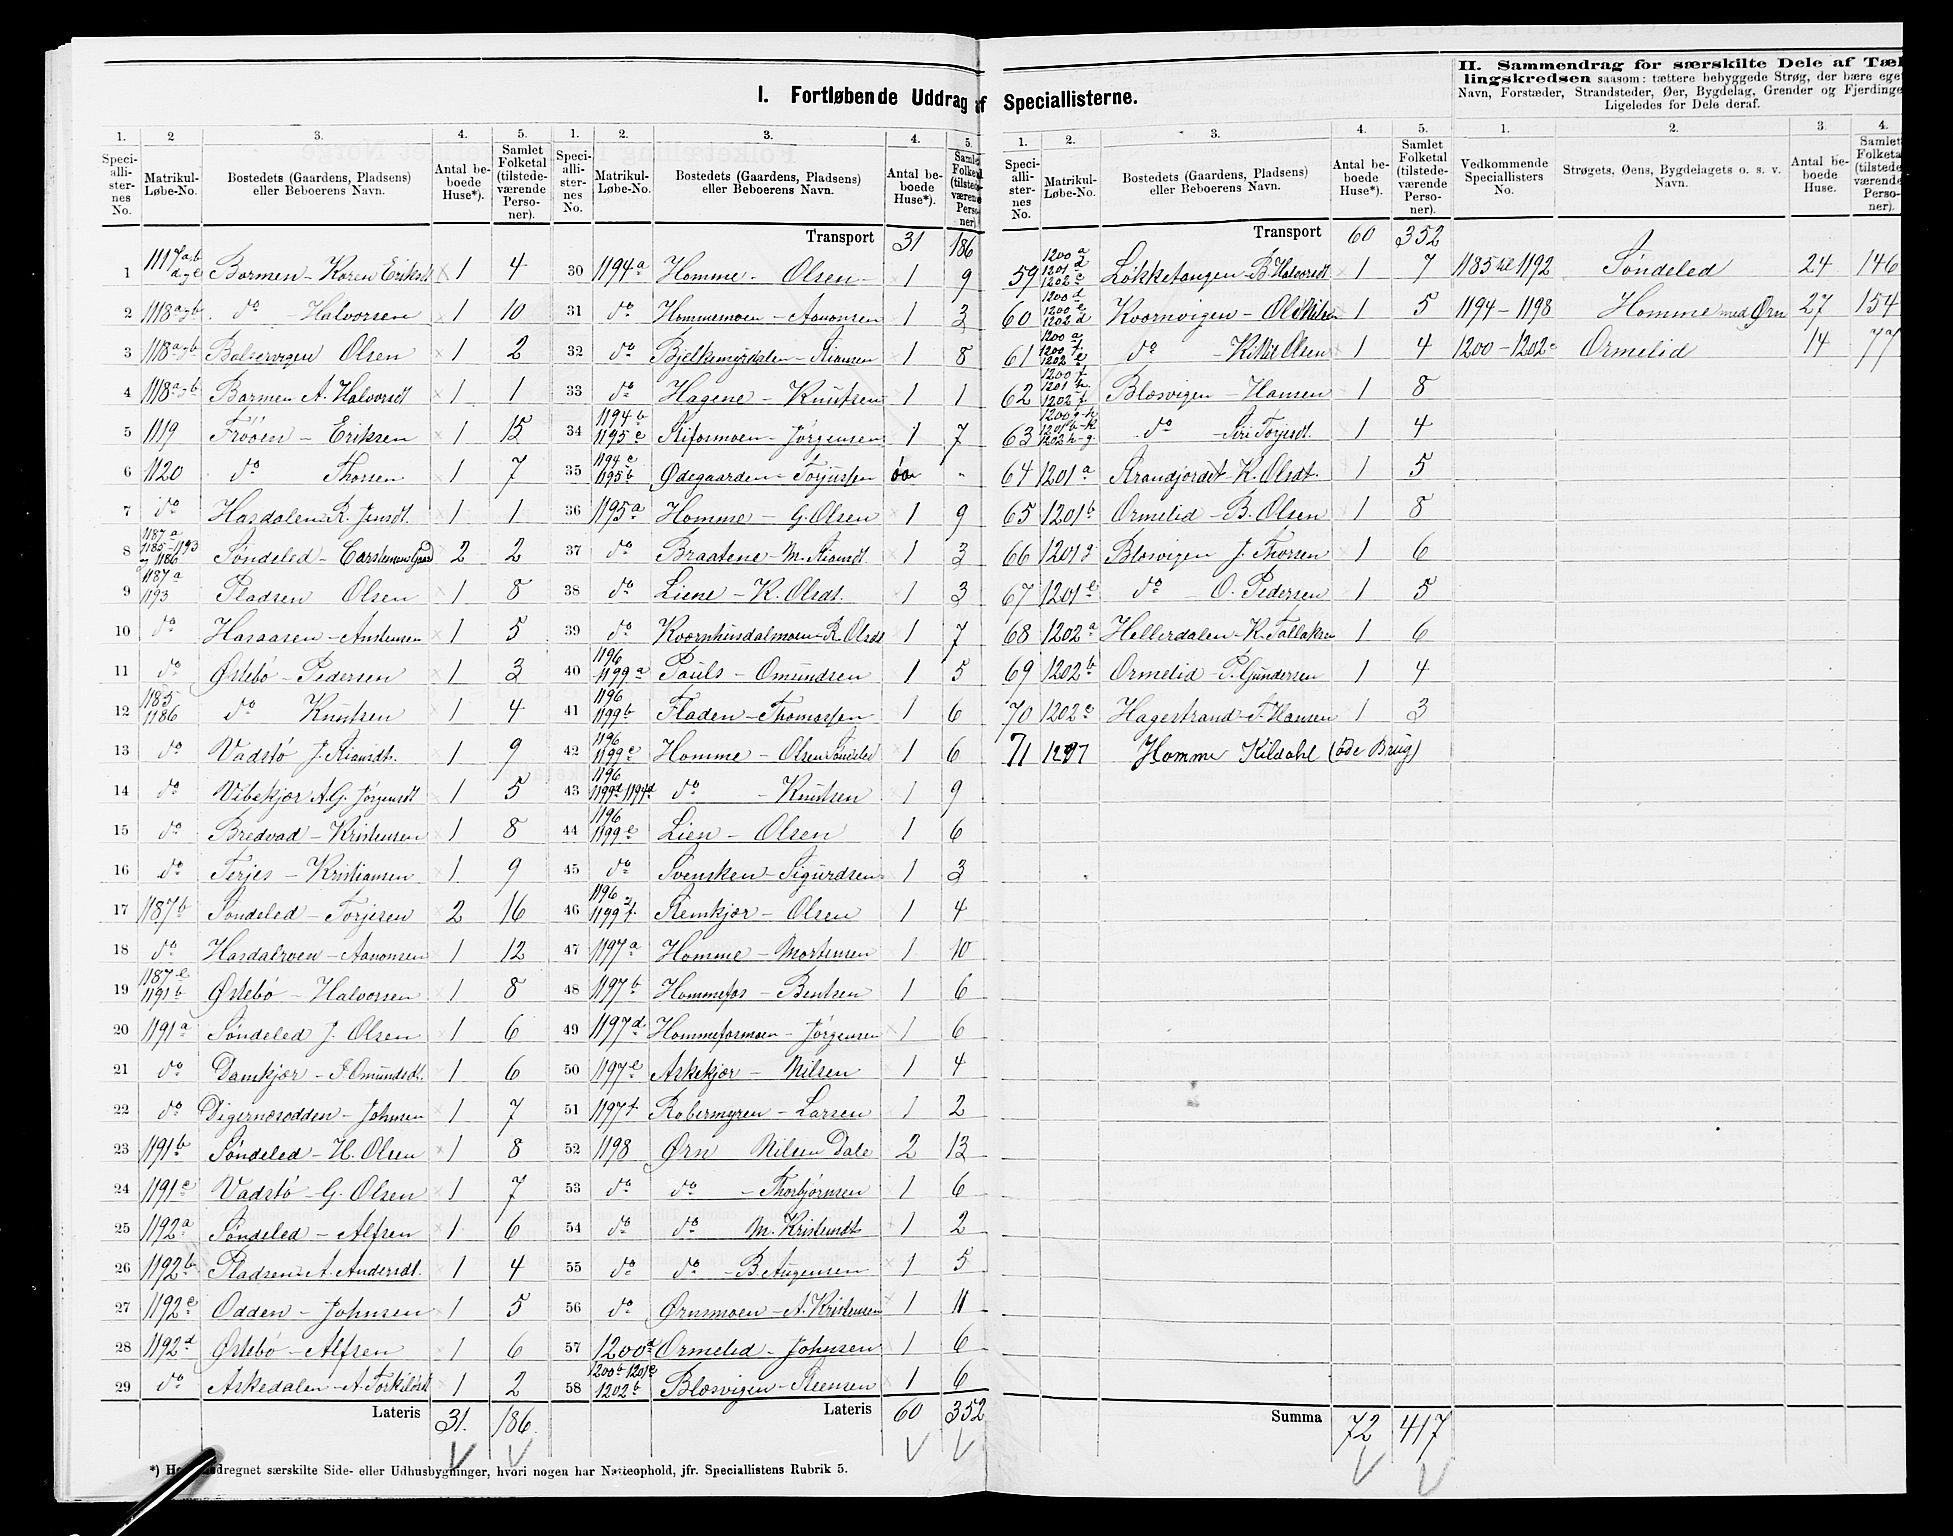 I. Fortløbende Uddrag af Speciallisterne.
II. Sammendrag for særskilte Dele af Tæl-
lingskredsen saasom: tættere bebyggede Strøg, der bære eget
Navn, Forstæder, Strandsteder, Øer, Bygdelag, Grender og Fjerdinge
Ligeledes for Dele deraf.
1. 2 3. 4. 5.
Speci-alli-ster-nes No. Matrikul-Løbe-No. Bostedets (Gaardens, Pladsens) eller Beboerens Navn. Antal be-boede Huse*). Samlet Folketal (tilstede-værende Perso-ner).
1 1117 a,b d,e Barmen - Karen Eriksdt. 1 4
2 1118 a,b do Halvorsen 1 10
3 1118 a,b Olsen 1 2
4 1118 a,b Barmen A. Halvorsdt 1 1
5 1119 Frøoen - Eriksen 1 15
6 1120 do Thorsen 1 7
7 do Hasdalen R. Jensdt. 1 1
8 1187 a 1185-1193 1186 Søndeled - Carstensens Gaard 2 2
9 1187 a 1193 Pladsen Olsen 1 8
10 do Hasaasen - Austensen 1 5
11 do Østebø - Pedersen 1 3
12 1185 1186 do Knutsen 1 4
13 do Vadstø J. 1 9
14 do Vibekjær A.G. Jørgensdt 1 5
15 do Bredvad - Kristensen 1 8
16 do Terjes - Kristiansen 1 9
17 1187 b Søndeled - Torjesen 2 16
18 do Aanonsen 1 12
19 1187 c 1191 b Østebø - Halvorsen 1 8
20 1191 a Søndeled J. Olsen 1 6
21 do Damkjær - Omundsdt. 1 6
22 do Digernæsodden - Johnsen 1 7
23 1191 b Søndeled - H. Olsen 1 8
24 1191 c Vadstø - G. Olsen 1 7
25 1192 a Søndeled - Alfsen 1 6
26 1192 b Pladsen A. Andersdt. 1 4
27 1192 c Odden - Johnsen 1 5
28 1192 d Østebø - Alfsen 1 6
29 do Askedalen - A. Torkildsdt 1 2
Lateris 31. 186.
1. 2. 3. 4. 5.
Speci-alli-ster-nes No. Matrikul-Løbe-No. Bostedets (Gaardens, Pladsens) eller Beboerens Navn. Antal be-boede Huse*). Samlet Folketal (tilstede-værende Perso-ner).
Transport 31 186
30 1194 a Homme - Olsen 1 9
31 do Hommemoen - Aanonsen 1 3
32 do 1 8
33 do Hagene - Knutsen 1 1
34 1194 b 1195 c Jørgensen 1 7
35 1194 c 1195 b Ødegaarden - Torjussen "
36 1195 a Homme - G. Olsen 1 9
37 do Braatene M. 1 3
38 do Liene - K. Olsdt. 1 3
39 do Kvernhusdalmoen - R. Olsdt 1 7
40 1196 1199 a Pauls - Omundsen 1 5
41 1196 1199 b Fladen - Thomassen 1 6
42 1196 1199 c Homme - Olsen Søndeled 1 6
43 1196 1199 d 1194 d do - Knutsen 1 9
44 1196 1199 e Lien - Olsen 1 6
45 do Svensken - Sigurdsen 1 3
46 1196 1199 f. Stemkjær - Olsen 1 4
47 1197 a Homme - Mortensen 1 10
48 1197 b Hommefos - Bentsen 1 6
49 1197 d Hommefosmoen - Jørgensen 1 6
50 1197 e Askekjær - Nilsen 1 4
51 1197 f Røbermyren - Larsen 1 2
52 1198 Ørn Nilsen Dale 2 13
53 do do - Thorbjørnsen 1 6
54 do do M. Kristensdt 1 2
55 do do - B. Augensen 1 5
56 do Ørnsmoen - A. Kristensen 1 11
57 1200 d Ormelid - Johnsen 1 6
58 1200 b 1201 c 1202 b Blæsvigen - Steensen 1 6
Lateris 60 352
1. 2. 3. 4. 5.
Speci-alli-ster-nes No. Matrikul-Løbe-No. Bostedets (Gaardens, Pladsens) eller Beboerens Navn. Antal be-boede Huse*). Samlet Folketal (tilstede-værende Perso-ner).
Transport 60 352
59 1200 a 1201 d 1202 c Løkketangen - B. Halvorsdt 1 7
60 1200 d 1200 e 1202 d Kvernvigen - Ole Nilsen 1 5
61 1200 a 1200 f. 1202 e do - Olsen 1 4
62 1200 f 1201 h. 1202 f. Blæsvigen - Hansen 1 8
63 1200 g-h 1201 b-k 1202 h-g. do - Siri Torjusdt. 1 4
64 1201 a Strandjordet - K. Olsdt. 1 5
65 1201 b Ormelid - B. Olsen 1 8
66 1201 g Blæsvigen J. Thorsen 1 6
67 1201 e do - O. Pedersen 1 5
68 1202 a Hellerdalen - K. Tallaksen 1 6
69 1202 b Ormelid - P. Gundersen 1 4
70 1202 c Hagestrand - T. Hansen 1 3
71 1297 Homme Kildahl (øde Brug)
Summa 72 417
1. 2. 3. 4.
Vedkommende Speciallisters No. Strøgets, Øens, Bygdelagets o. s. v. Navn. Antal be-boede Huse. Samlet Folketal (tilstede-værende Perso-ner).
1185 til 1192 Søndeled 24 146
1194 - 1198 Homme med Ørn 27 154
1200 - 1202 Ormelid 14 77
*) regnet særskilte Side- eller Udhusbygninger, hvori nogen har Natteophold, jfr. Speciallistens Rubrik 5.